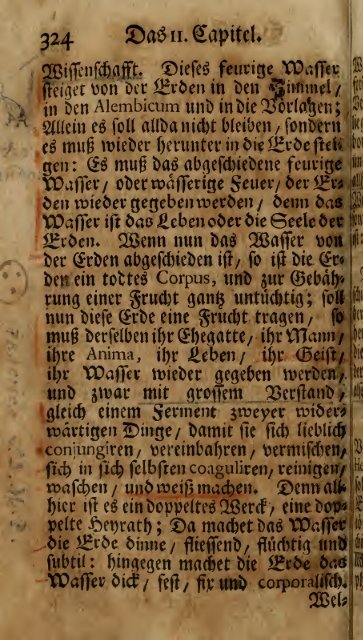 324 Das II. Capitel.
Wissenschafft. Dieses feurige Wasser
steiget von der Erden in den Himmel,
in den Alembicum und in die Vorlagen;
Allein es soll allda nicht bleiben, sondern
es muß wieder herunter in die Erde stei-
gen: Es muß das abgeschiedene feurige
Wasser/ oder wässerige Feuer/ der Er-
den wieder gegeben werden/ denn das
Wasser ist das Leben oder die Seele der
Erden. Wenn nun das Wasser von
der Erden abgeschieden ist/ so ist die Er-
den ein todtes Corpus, und zur Gebäh-
rung einer Frucht gantz untüchtig; soll
nun diese Erde eine Frucht tragen/ so
muß derselben ihr Ehegatte/ ihr Mann/
ihre Anima, ihr Leben/ ihr Geist/
ihr Wasser wieder gegeben werden/
und zwar mit grossem Verstand/
gleich einem Ferment zweyer wider-
wärtigen Dinge/ damit sie sich lieblich
conjungiren/ vereinbahren/ vermischen/
sich in sich selbsten coaguliren, reinigen/
waschen/ und weiß machen. Denn all-
hier ist es ein doppeltes Werck/ eine dop-
pelte Heyrath; Da machet das Wasser
die Erde dinne/ fliessend/ flüchtig und
subtil: hingegen machet die Erde das
Wasser dick/ fest/ fix und corporalisch.
Wel-